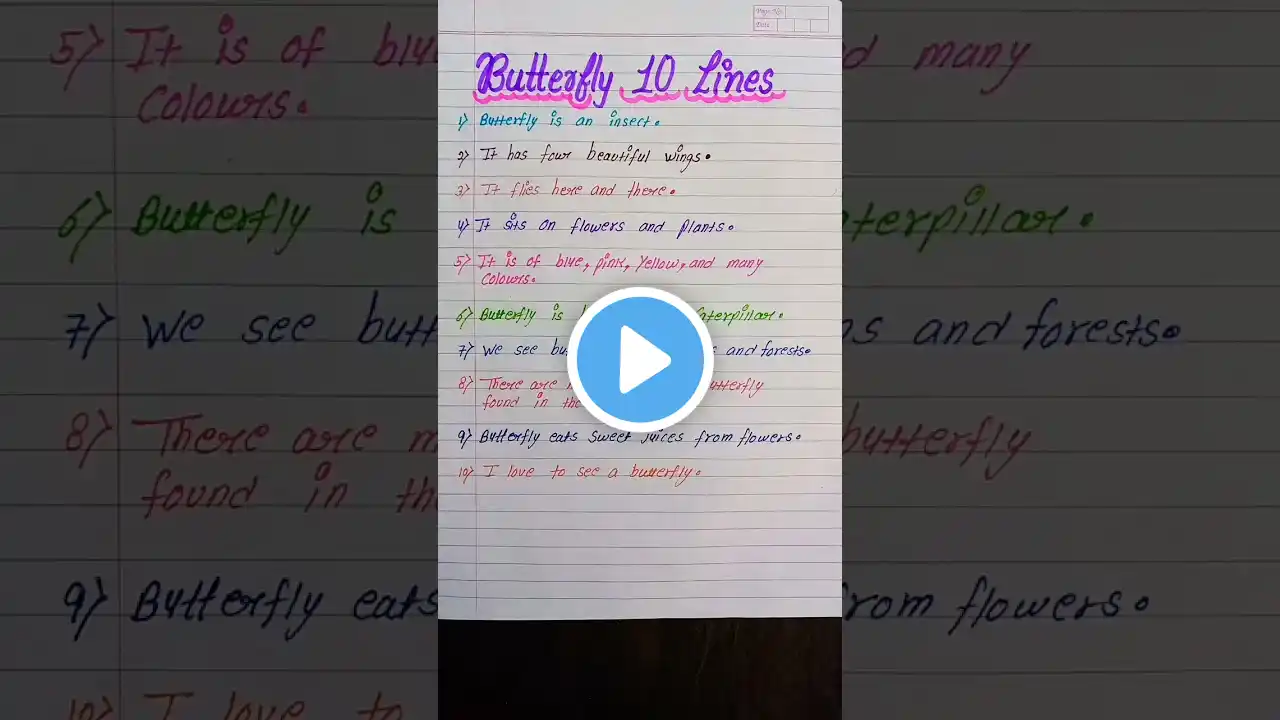 Page No.
Date
Butterfly 10 Lines
1) Butterfly is an insect.
2) It has four beautiful wings.
3) It flies here and there.
4) It sits on flowers and plants.
5) It is of blue, pink, yellow, and many
Colours.
6) Butterfly is Caterpillar.
7) We see and forests.
8) There are butterfly
found in the
9) Butterfly eats sweet juices from flowers.
10) I love to see a butterfly.